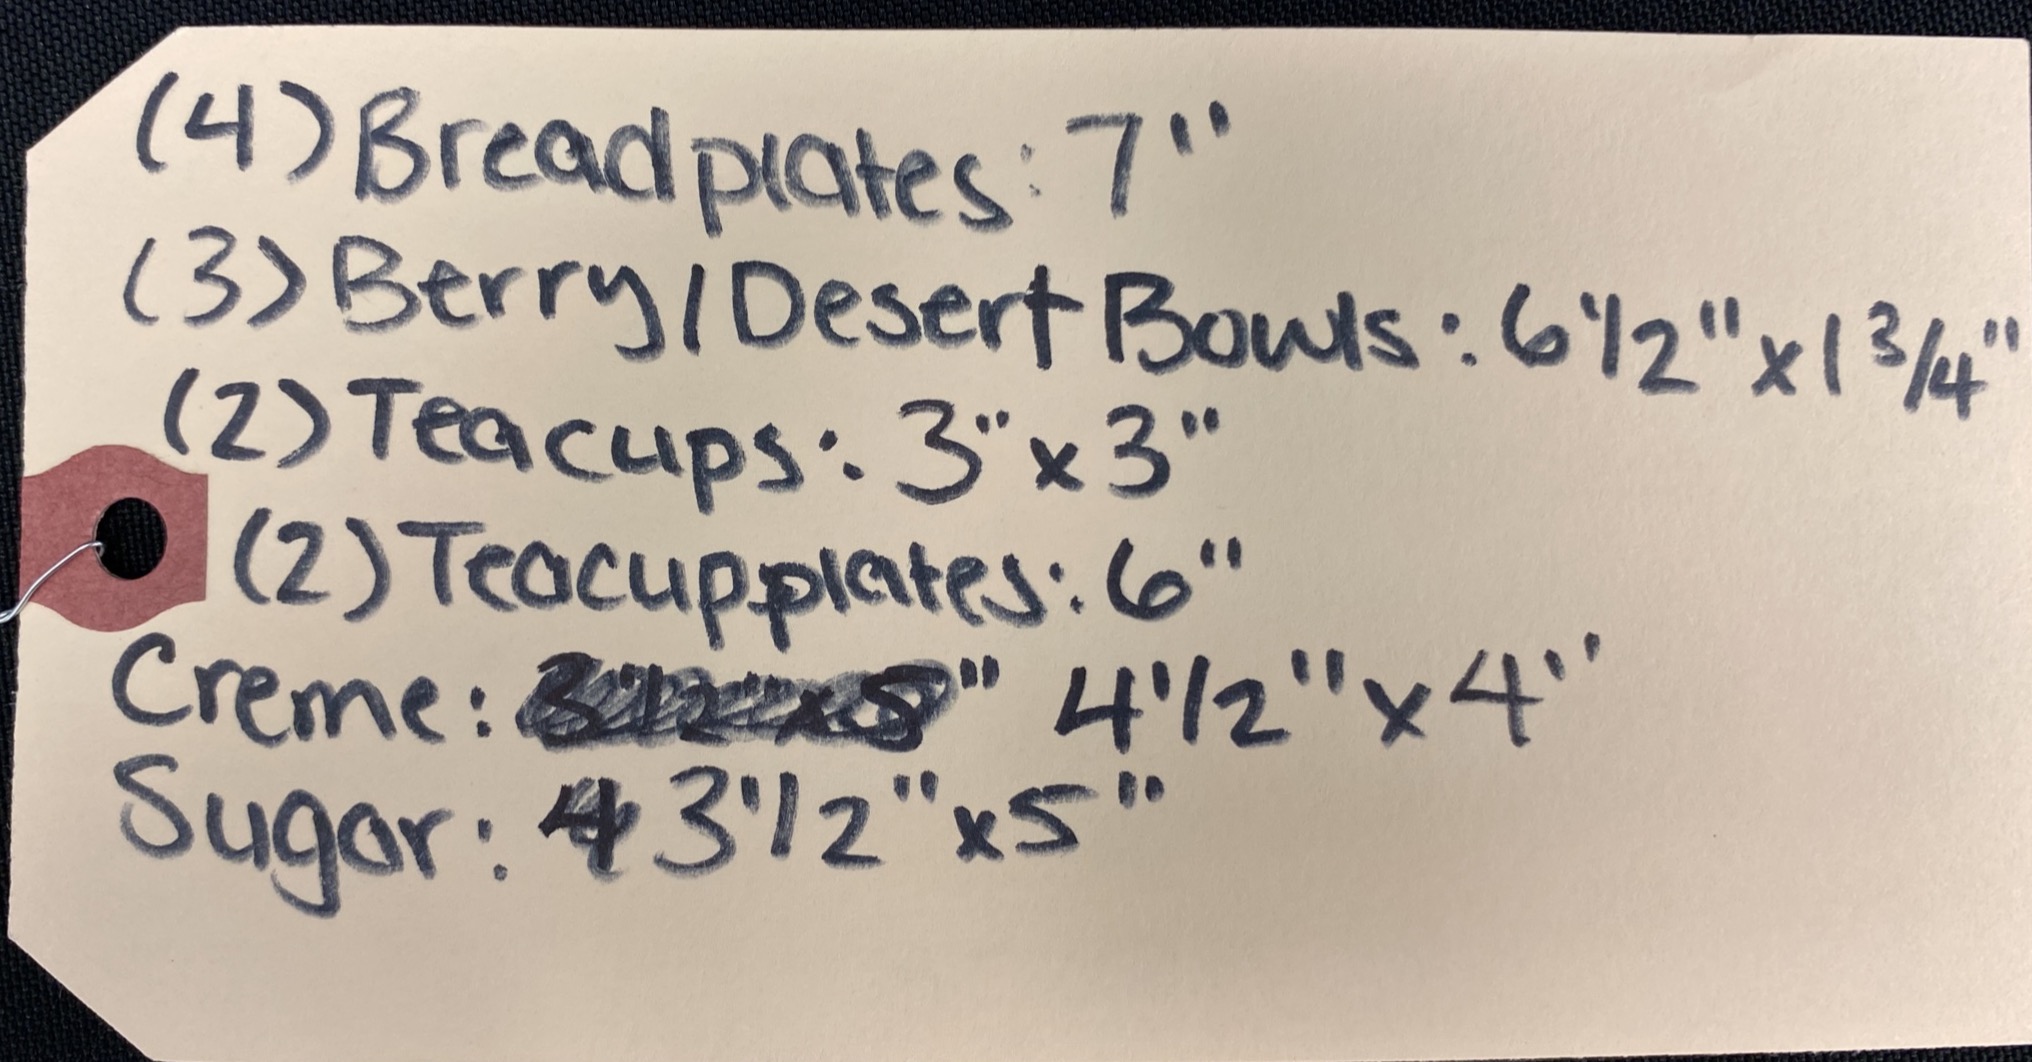 (4) Bread plates: 7"
(3) Berry/Desert Bowls: 6 1/2" x 1 3/4"
(2) Teacups: 3" x 3"
(2) Teacup plates: 6"
Creme: 3 1/2" x 5" 4 1/2" x 4"
Sugar: 4 3 1/2" x 5"